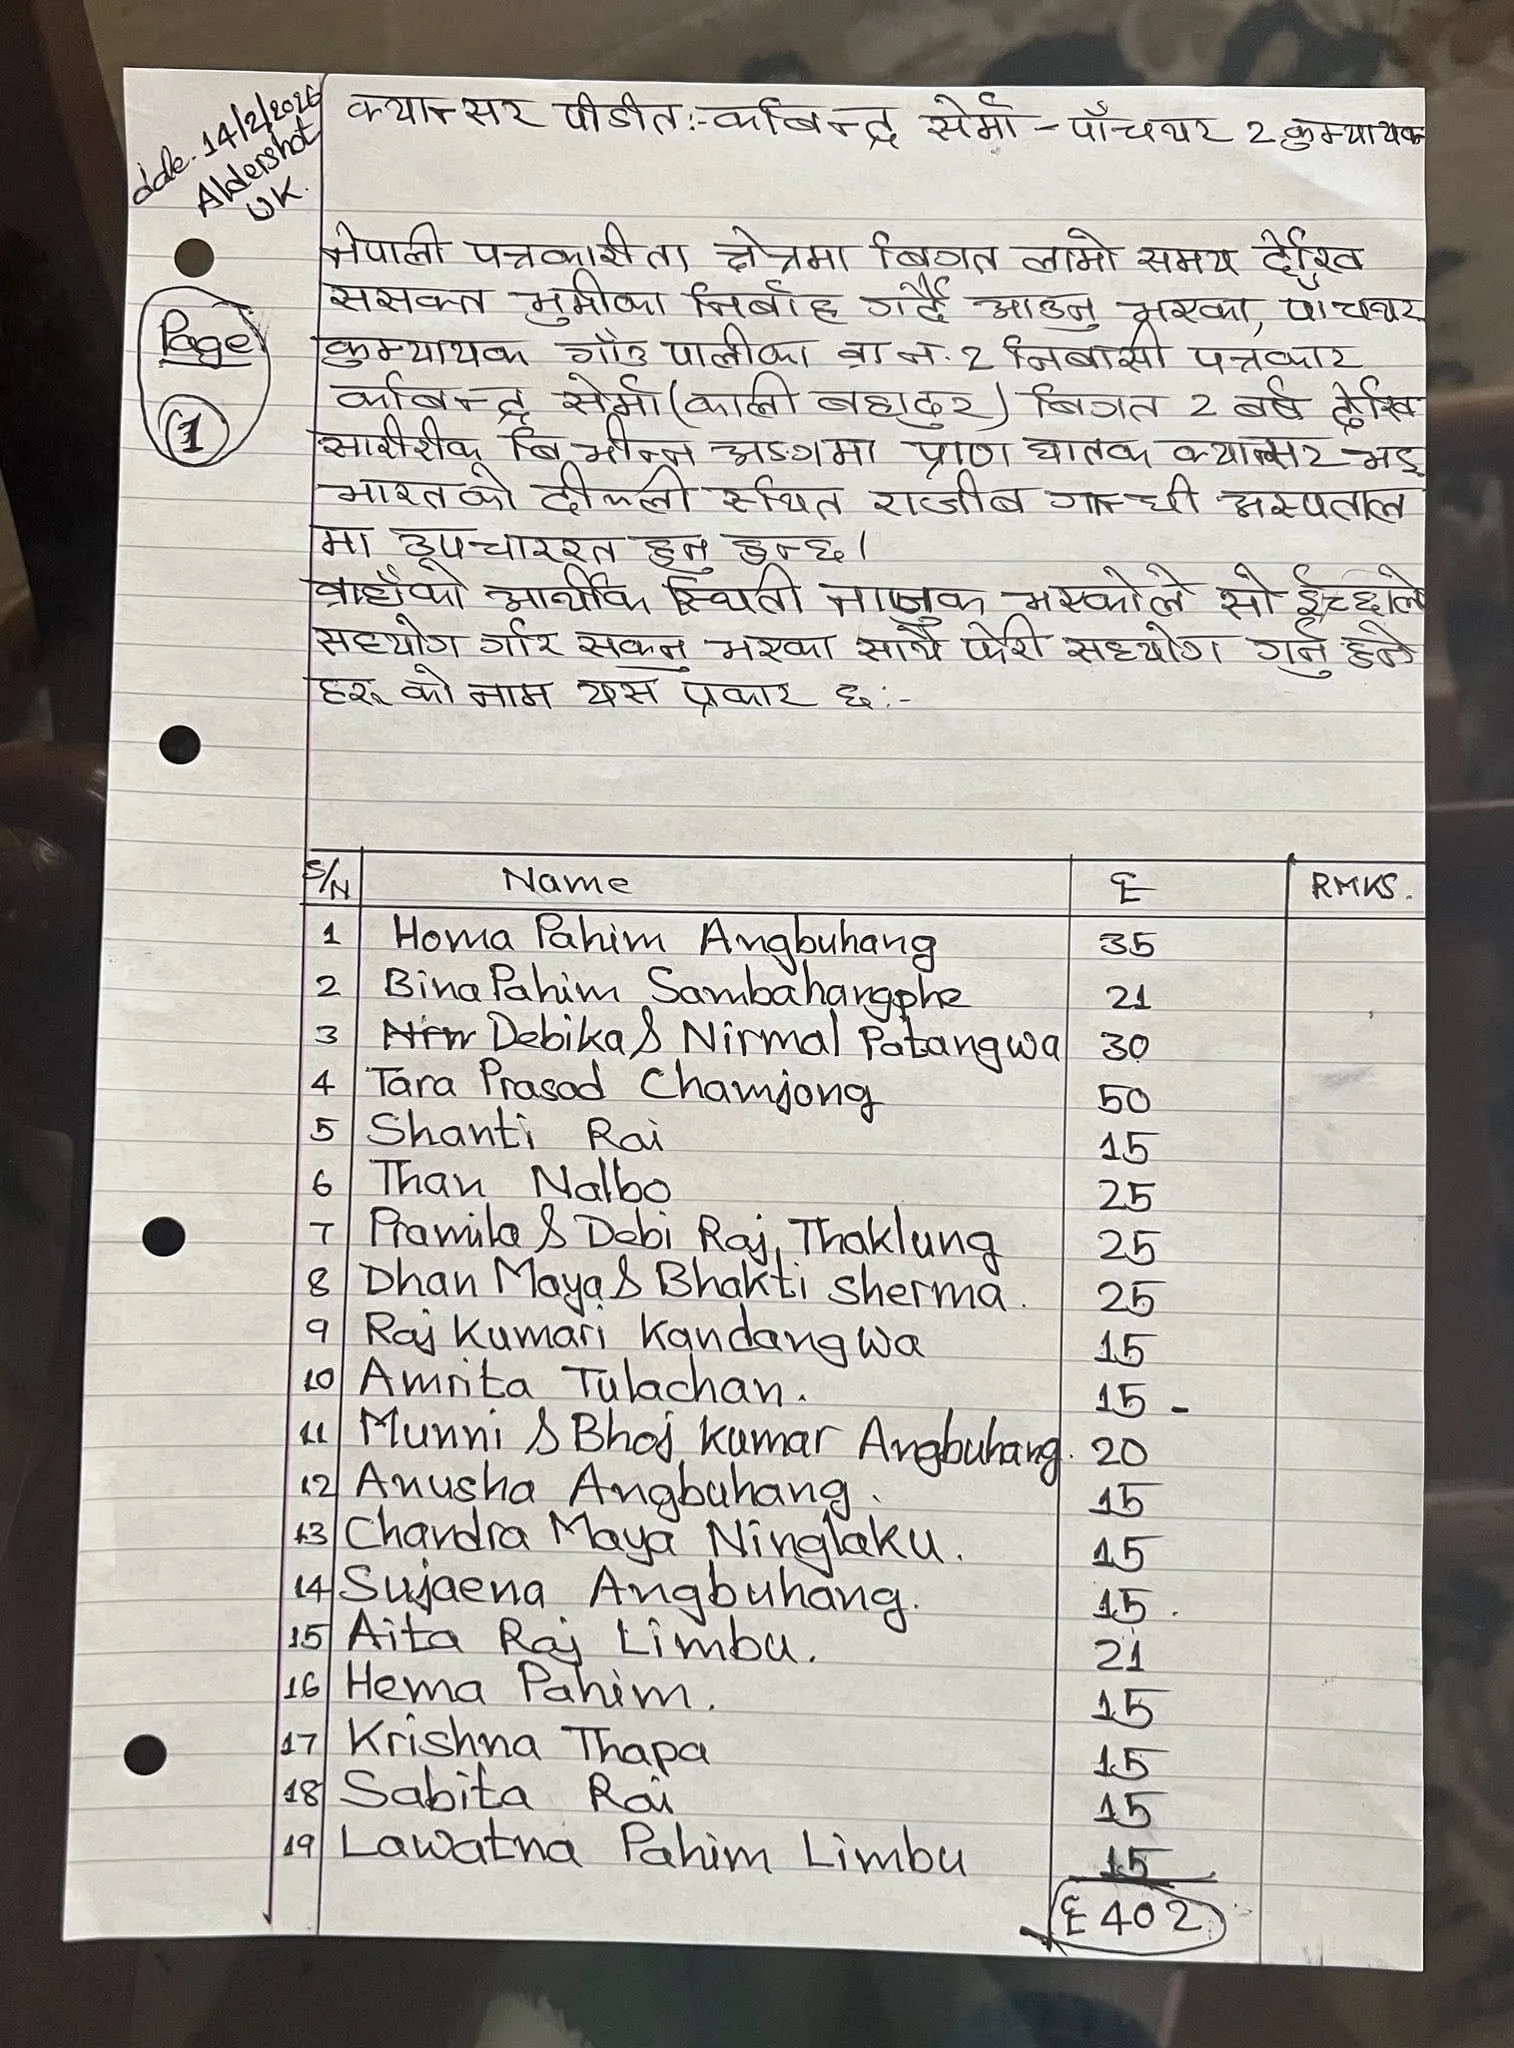 date. 14/2/2026
Aldershot
UK.
Page
1
क्यान्सर पीडीत:-कबिन्द्र सेर्मा - पाँचथर 2 कुम्मायक
नेपाली पत्रकारीता क्षेत्रमा बिगत लामो समय देखि
ससक्त भुमीका निर्बाह गर्दै आउनु भएका, पाचथर
कुम्मायक गाँउ पालीका वा न. 2 निबासी पत्रकार
कबिन्द्र सेर्मा (काली बहादुर) बिगत 2 बर्ष देखि
सारीरीक बिभीन्न अङगमा प्राण घातक क्यान्सर भइ
भारतको दील्ली स्थित राजीब गान्धी अस्पताल
मा उपचाररत हुनु हुन्छ।
वाहाँको आर्थीक स्थिती नाजुक भएकोले सो ईच्छाले
सहयोग गरि सक्नु भएका साथै फेरी सहयोग गर्नु हुने
हरू को नाम यस प्रकार छ:-
S/N Name £ RMKS.
1 Homa Pahim Angbuhang 35
2 Bina Pahim Sambahangphe 21
3 Debika & Nirmal Patangwa 30
4 Tara Prasad Chamjong 50
5 Shanti Rai 15
6 Than Nalbo 25
7 Pramila & Debi Raj Thaklung 25
8 Dhan Maya & Bhakti Sherma. 25
9 Raj Kumari Kandangwa 15
10 Amrita Tulachan. 15 -
11 Munni & Bhoj Kumar Angbuhang. 20
12 Anusha Angbuhang. 15
13 Chandra Maya Ninglaku. 15
14 Sujaena Angbuhang. 15.
15 Aita Raj Limbu. 21
16 Hema Pahim. 15
17 Krishna Thapa 15
18 Sabita Rai 15
19 Lawatna Pahim Limbu 15
£ 402